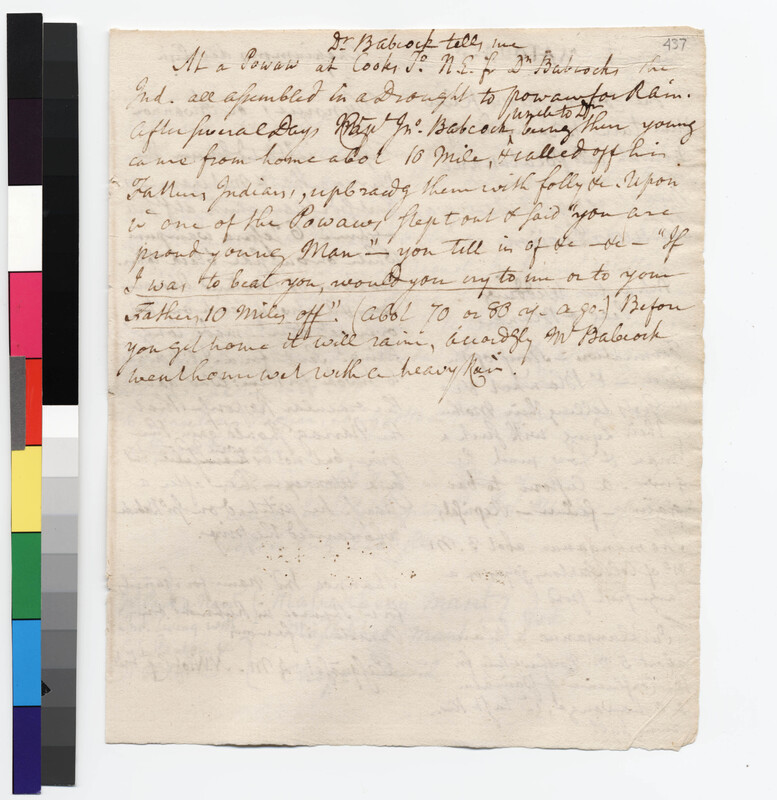 437
Dr Babcock tells me
At a Powaw at Cooks Jo. N.E. fr Dr Babcocks the
Ind. all assembled in a Drought to powaw for Rain.
After several Days Jno. Babcock, uncle to Dr being then young
came from home abot 10 Mile, & called off his
Fathers Indians, upbraidg them with folly &c. Upon
wc one of the Powaws stept out & said "you are
proud young Man" — you tell us of &c — &c — "If
I was to beat you, would you cry to me or to your
Father, 10 Miles off". (abot 70 or 80 ys ago) Before
you get home it will rain, accordgly Mr Babcock
went home wet with a heavy Rain.